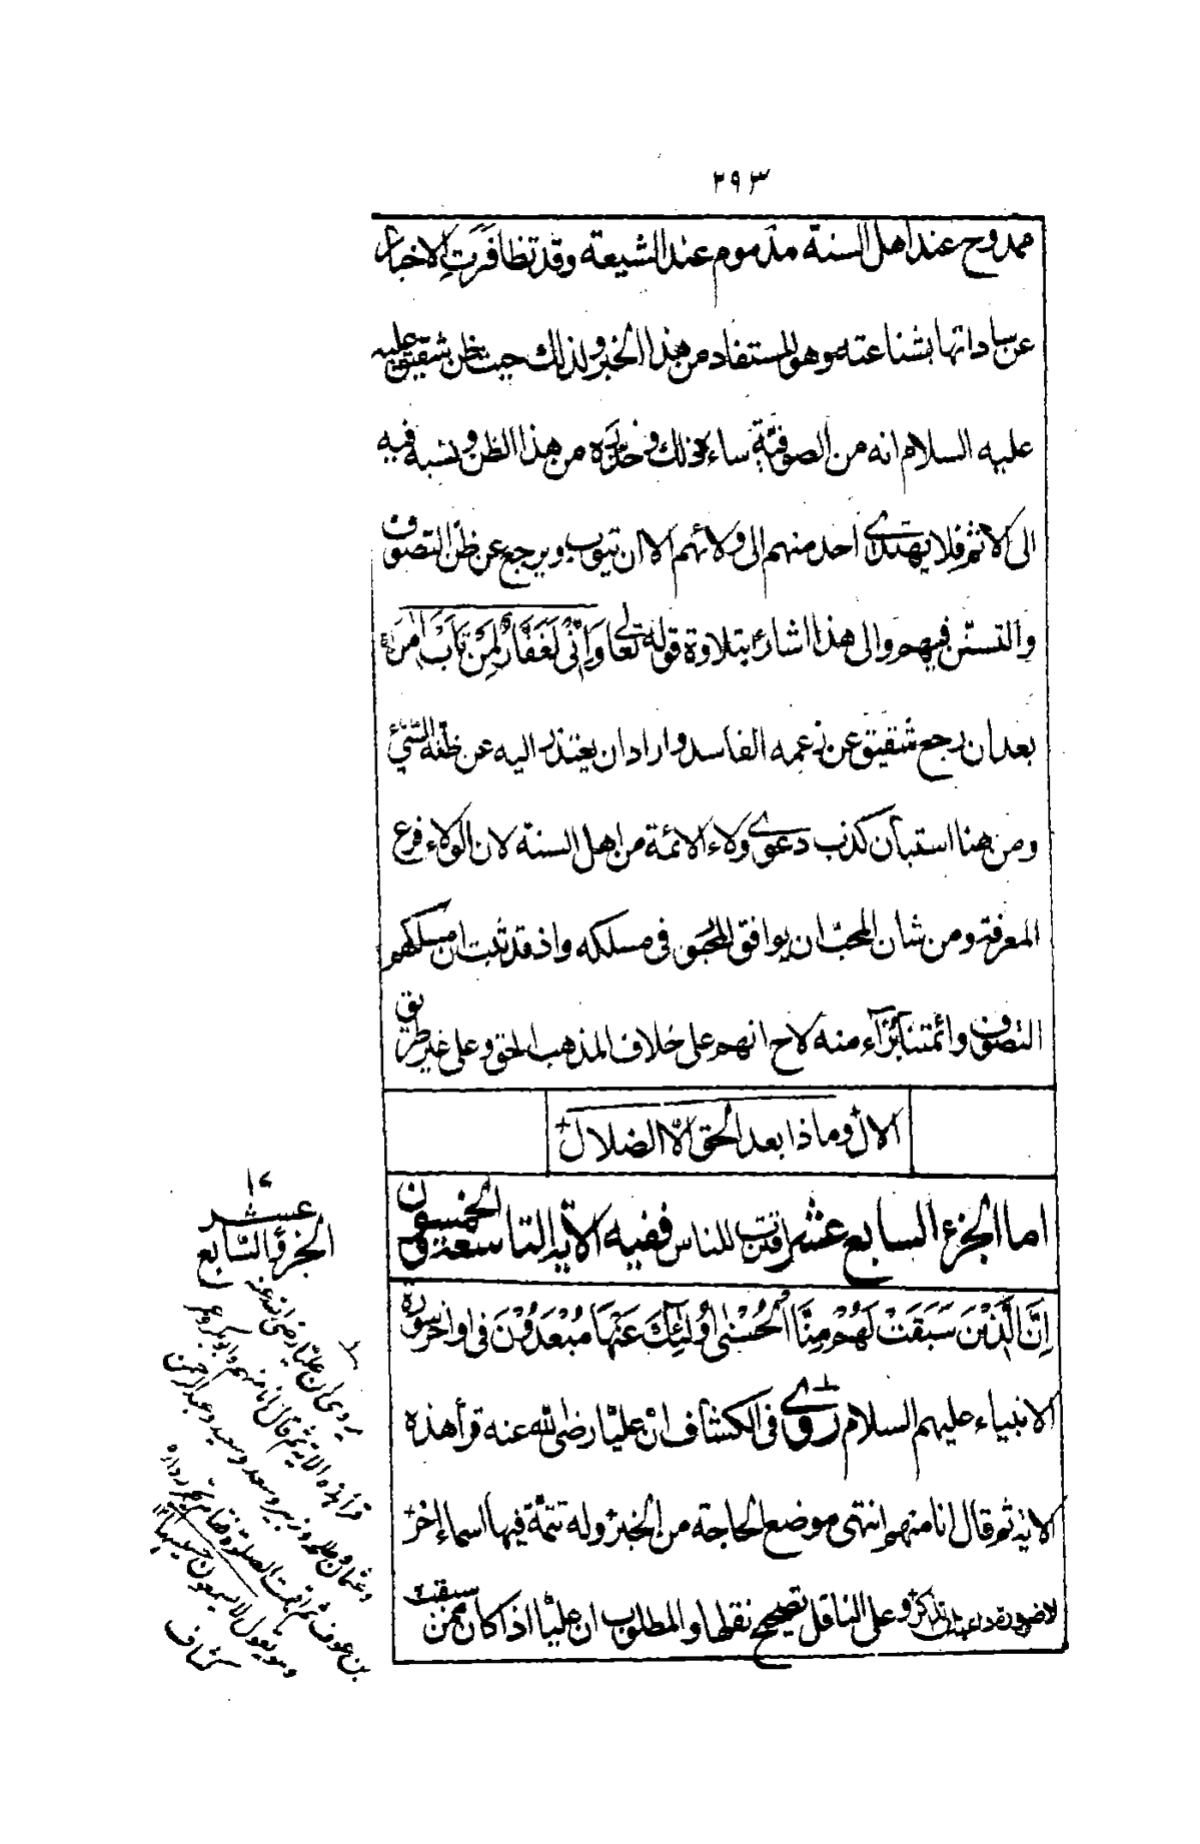 ٢٩٣
ممدوح عند اهل السنة مذموم عند الشيعة وقد تظافرت الاخبار
عن ساداتها بشناعته وهو المستفاد من هذا الخبر ولذلك حيث ظن شقيق عليه
عليه السلام انه من الصوفيّة ساءه ذلك وحذّره من هذا الظن ونسبه فيه
الى الاثم فلا يهتدى احد منهم الى ولائهم الا ان يتوب ويرجع عن ظنّ التصوف
والتسنّن فيهم والى هذا اشار بتلاوة قوله تعالى وَاِنّى لَغَفّارٌ لِمَنْ تَابَ وَاٰمَنَ
بعد ان رجع شقيق عن زعمه الفاسد واراد ان يعتذر اليه عن ظنّه السّيّئ
ومن هنا استبان كذب دعوى ولاء الائمة من اهل السنة لان الولاء فرع
المعرفة ومن شان المحبّ ان يوافق المحبوب فى مسلكه واذ قد ثبت ان مسلكهم
التصوف وائمتنا برآء منه لاح انهم على خلاف المذهب الحق وعلى غير طريق
الآل وماذا بعد الحق الّا الضلال
اما الجزء السابع عشر اقترب للناس ففيه الآية التاسعة والخمسون
اِنَّ الَّذِيْنَ سَبَقَتْ لَهُمْ مِنَّا الْحُسْنٰى اُولٰئِكَ عَنْهَا مُبْعَدُوْنَ فى اواخر سورة
الانبياء عليهم السلام روى فى الكشاف انّ عليّا رضى الله عنه قرأ هذه
الاية ثم قال انا منهم انتهى موضع الحاجة من الخبر وله تتمّة فيها اسماء اخر
لا ضرورة على الناقل تصحيح نقلها والمطلوب ان عليّا اذا كان ممن سبقت
١٧
عشر
الجزء السّابع
يروى ان عليّا رضى الله عنه
قرأ هذه الاية ثم قال انا منهم وابو بكر وعمر
وعثمان وطلحة وزبير وسعد وسعيد وعبد الرحمن
بن عوف ثم اقيمت الصلوة فقام يجر رداءه
وهو يقول لا يسمعون حسيسها
كشاف